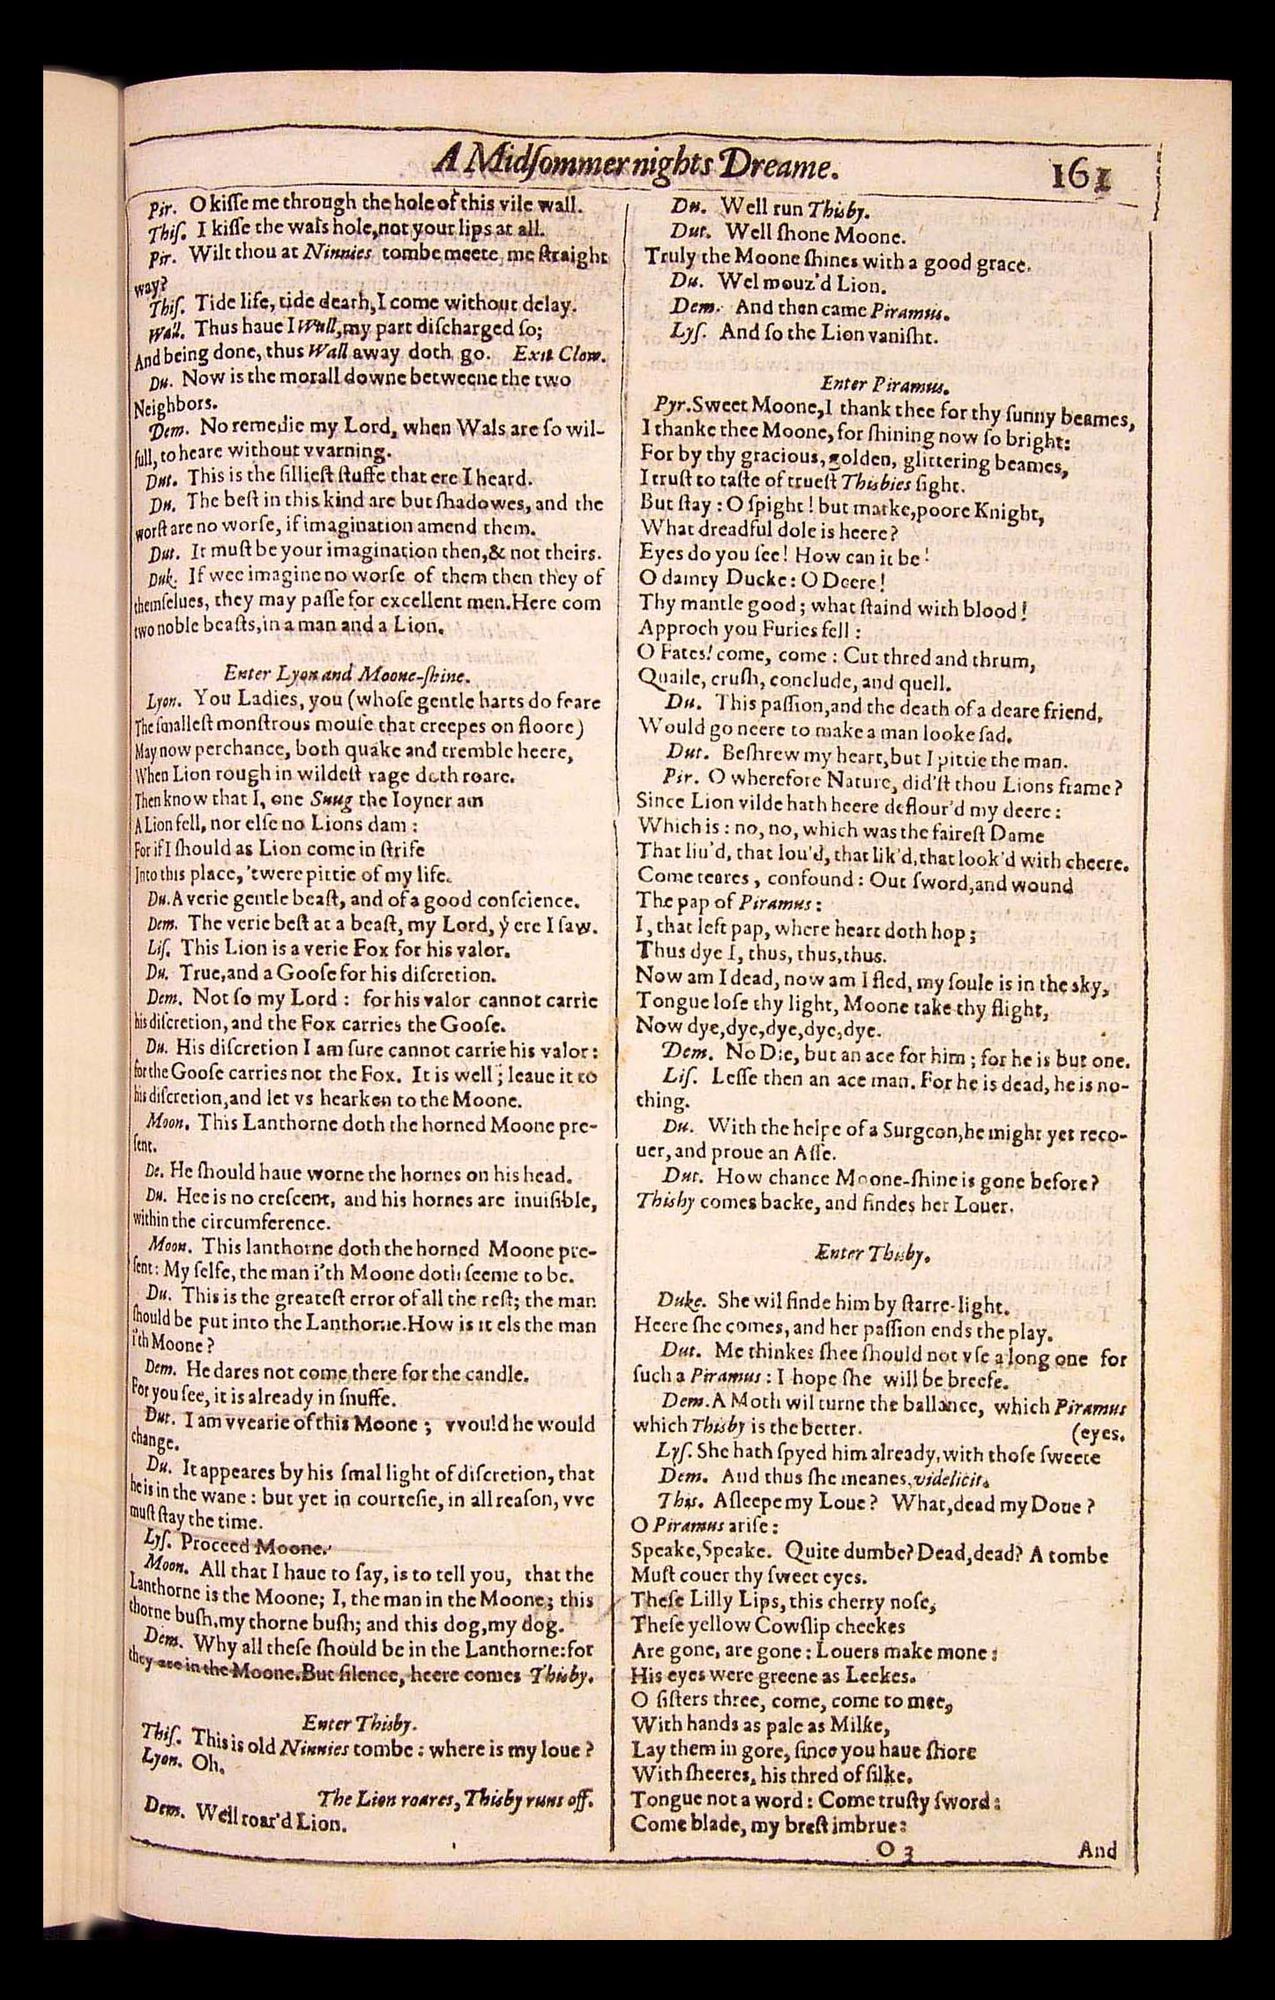 A Midſommer nights Dreame. 161
Pir. O kiſſe me through the hole of this vile wall.
Thiſ. I kiſſe the wals hole, not your lips at all.
Pir. Wilt thou at Ninnies tombe meete me ſtraight
way?
Thiſ. Tide life, tide death, I come without delay.
Wall. Thus haue I Wall, my part diſcharged ſo;
And being done, thus Wall away doth go. Exit Clow.
Du. Now is the morall downe betweene the two
Neighbors.
Dem. No remedie my Lord, when Wals are ſo wil-
full, to heare without vvarning.
Dut. This is the ſillieſt ſtuffe that ere I heard.
Du. The beſt in this kind are but ſhadowes, and the
worſt are no worſe, if imagination amend them.
Dut. It muſt be your imagination then, & not theirs.
Duk. If wee imagine no worſe of them then they of
themſelues, they may paſſe for excellent men. Here com
two noble beaſts, in a man and a Lion.
Enter Lyon and Moone-ſhine.
Lyon. You Ladies, you (whoſe gentle harts do feare
The ſmalleſt monſtrous mouſe that creepes on floore)
May now perchance, both quake and tremble heere,
When Lion rough in wildeſt rage doth roare.
Then know that I, one Snug the Ioyner am
A Lion fell, nor elſe no Lions dam :
For if I ſhould as Lion come in ſtrife
Into this place, 'twere pittie of my life.
Du. A verie gentle beaſt, and of a good conſcience.
Dem. The verie beſt at a beaſt, my Lord, ẏ ere I ſaw.
Liſ. This Lion is a verie Fox for his valor.
Du. True, and a Gooſe for his diſcretion.
Dem. Not ſo my Lord : for his valor cannot carrie
his diſcretion, and the Fox carries the Gooſe.
Du. His diſcretion I am ſure cannot carrie his valor :
for the Gooſe carries not the Fox. It is well ; leaue it to
his diſcretion, and let vs hearken to the Moone.
Moon. This Lanthorne doth the horned Moone pre-
ſent.
De. He ſhould haue worne the hornes on his head.
Du. Hee is no creſcent, and his hornes are inuiſible,
within the circumference.
Moon. This lanthorne doth the horned Moone pre-
ſent: My ſelfe, the man i'th Moone doth ſeeme to be.
Du. This is the greateſt error of all the reſt; the man
ſhould be put into the Lanthorne. How is it els the man
i'th Moone ?
Dem. He dares not come there for the candle.
For you ſee, it is already in ſnuffe.
Dut. I am vvearie of this Moone ; vvould he would
change.
Du. It appeares by his ſmal light of diſcretion, that
he is in the wane : but yet in courteſie, in all reaſon, vve
muſt ſtay the time.
Lyſ. Proceed Moone.
Moon. All that I haue to ſay, is to tell you, that the
Lanthorne is the Moone; I, the man in the Moone; this
thorne buſh, my thorne buſh; and this dog, my dog.
Dem. Why all theſe ſhould be in the Lanthorne: for
they are in the Moone. But ſilence, heere comes Thisby.
Enter Thisby.
Thiſ. This is old Ninnies tombe : where is my loue ?
Lyon. Oh.
The Lion roares, Thisby runs off.
Dem. Well roar'd Lion.
Du. Well run Thisby.
Dut. Well ſhone Moone.
Truly the Moone ſhines with a good grace.
Du. Wel mouz'd Lion.
Dem. And then came Piramus.
Lyſ. And ſo the Lion vaniſht.
Enter Piramus.
Pyr. Sweet Moone, I thank thee for thy ſunny beames,
I thanke thee Moone, for ſhining now ſo bright:
For by thy gracious, golden, glittering beames,
I truſt to taſte of trueſt Thisbies ſight.
But ſtay : O ſpight ! but marke, poore Knight,
What dreadful dole is heere ?
Eyes do you ſee ! How can it be !
O dainty Ducke : O Deere !
Thy mantle good ; what ſtaind with blood !
Approch you Furies fell :
O Fates! come, come : Cut thred and thrum,
Quaile, cruſh, conclude, and quell.
Du. This paſſion, and the death of a deare friend,
Would go neere to make a man looke ſad.
Dut. Beſhrew my heart, but I pittie the man.
Pir. O wherefore Nature, did'ſt thou Lions frame ?
Since Lion vilde hath heere deflour'd my deere :
Which is : no, no, which was the faireſt Dame
That liu'd, that lou'd, that lik'd, that look'd with cheere.
Come teares, confound : Out ſword, and wound
The pap of Piramus :
I, that left pap, where heart doth hop ;
Thus dye I, thus, thus, thus.
Now am I dead, now am I fled, my ſoule is in the sky,
Tongue loſe thy light, Moone take thy flight,
Now dye, dye, dye, dye, dye.
Dem. No Die, but an ace for him ; for he is but one.
Liſ. Leſſe then an ace man. For he is dead, he is no-
thing.
Du. With the helpe of a Surgeon, he might yet reco-
uer, and proue an Aſſe.
Dut. How chance Moone-ſhine is gone before ?
Thisby comes backe, and findes her Louer.
Enter Thisby.
Duke. She wil finde him by ſtarre-light.
Heere ſhe comes, and her paſſion ends the play.
Dut. Me thinkes ſhee ſhould not vſe a long one for
ſuch a Piramus : I hope ſhe will be breefe.
Dem. A Moth wil turne the ballance, which Piramus
which Thisby is the better. (eyes.
Lyſ. She hath ſpyed him already, with thoſe ſweete
Dem. And thus ſhe meanes, videlicit.
This. Aſleepe my Loue ? What, dead my Doue ?
O Piramus ariſe :
Speake, Speake. Quite dumbe? Dead, dead? A tombe
Muſt couer thy ſweet eyes.
Theſe Lilly Lips, this cherry noſe,
Theſe yellow Cowſlip cheekes
Are gone, are gone : Louers make mone :
His eyes were greene as Leekes.
O ſiſters three, come, come to mee,
With hands as pale as Milke,
Lay them in gore, ſince you haue ſhore
With ſheeres, his thred of ſilke.
Tongue not a word : Come truſty ſword :
Come blade, my breſt imbrue :
O 3 And